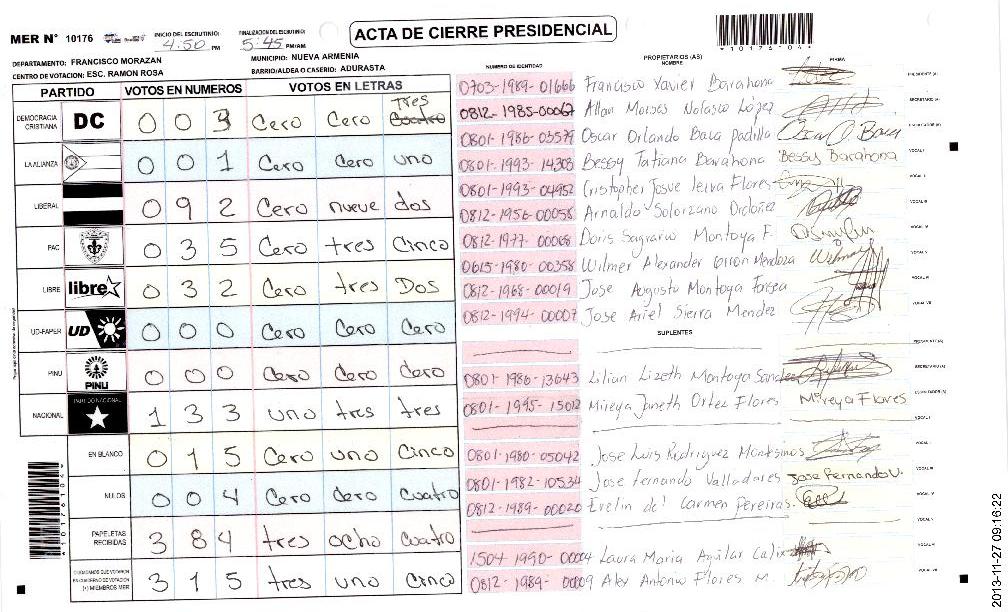 ACTA DE CIERRE PRESIDENCIAL
MER N° 10176
INICIO DEL ESCRUTINIO: 4:50 PM
FINALIZACION DEL ESCRUTINIO: 5:45 PM/AM
*10176-04*
DEPARTAMENTO: FRANCISCO MORAZAN
MUNICIPIO: NUEVA ARMENIA
CENTRO DE VOTACION: ESC. RAMON ROSA
BARRIO/ALDEA O CASERIO: ADURASTA
PARTIDO VOTOS EN NUMEROS VOTOS EN LETRAS
DEMOCRACIA CRISTIANA DC 0 0 3 Cero Cero Tres
LA ALIANZA 0 0 1 Cero Cero uno
LIBERAL 0 9 2 Cero nueve dos
PAC 0 3 5 Cero tres Cinco
LIBRE libre 0 3 2 Cero tres Dos
UD-FAPER UD 0 0 0 Cero Cero Cero
PINU PINU 0 0 0 Cero Cero Cero
NACIONAL PARTIDO NACIONAL 1 3 3 uno tres tres
EN BLANCO 0 1 5 Cero uno Cinco
NULOS 0 0 4 Cero Cero Cuatro
PAPELETAS RECIBIDAS 3 8 4 tres ocho cuatro
CIUDADANOS QUE VOTARON EN CUADERNO DE VOTACION (+) MIEMBROS MER 3 1 5 tres uno Cinco
PROPIETARIOS (AS)
NUMERO DE IDENTIDAD NOMBRE FIRMA
0703-1989-01666 Francisco Xavier Barahona PRESIDENTE (A)
0812-1985-00067 Allan Moises Nolasco López SECRETARIO (A)
0801-1986-03579 Oscar Orlando Baca Padilla Oscar O. Baca ESCRUTADOR (A)
0801-1993-14303 Bessy Tatiana Barahona Bessy Barahona VOCAL I
0801-1993-04952 Cristopher Josue leiva Flores VOCAL II
0812-1956-00058 Arnaldo Solorzano Ordoñez VOCAL III
0812-1977-00068 Doris Sagrario Montoya F. VOCAL IV
0615-1980-00358 Wilmer Alexander Mendoza Wilmer VOCAL V
0812-1968-00019 Jose Augusto Montoya VOCAL VI
0812-1994-00007 Jose Ariel Sierra Mendez VOCAL VII
SUPLENTES
PRESIDENTE (A)
0801-1986-13643 Lilian Lizeth Montoya Sandres SECRETARIO (A)
0801-1995-15012 Mireya Janeth Ortez Flores Mireya Flores ESCRUTADOR (A)
VOCAL I
0801-1980-05042 Jose Luis Rodriguez Montesinos VOCAL II
0801-1982-10534 Jose Fernando Valladares Jose Fernando V. VOCAL III
0812-1989-00020 Evelin del Carmen Pereiras. VOCAL IV
VOCAL V
1504-1990-00004 Laura Maria Aguilar Calix VOCAL VI
0812-1989-00009 Alex Antonio Flores M. VOCAL VII
*10176104*
2013-11-27 09:16:22